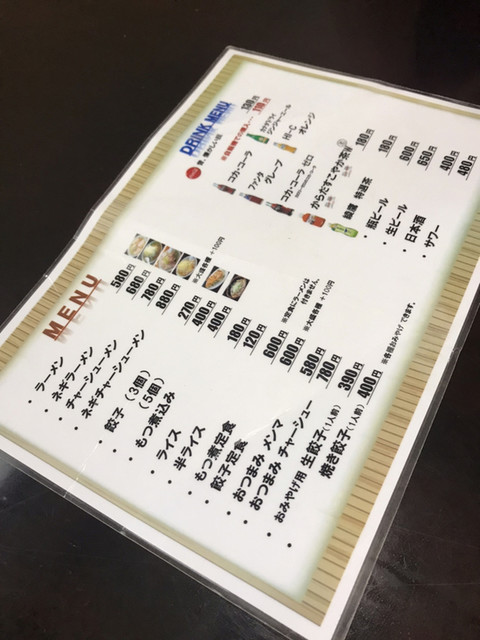 MENU
・ラーメン 580円
・ネギラーメン 680円
・チャーシューメン 780円
・ネギチャーシューメン 880円
※大盛各種 +100円
・餃子 (3個) 270円
(5個) 400円
・もつ煮込み 400円
・ライス
・半ライス 120円
・もつ煮定食 600円
・餃子定食 600円
※定食にラーメンは付きません。
※大盛各種 +100円
・おつまみ メンマ 580円
・おつまみ チャーシュー 780円
・おみやげ用 生餃子(1人前) 390円
焼き餃子(1人前) 400円
※各種おみやげ できます。
DRINK MENU
110円
コカ・コーラ
カナダドライ
ジンジャーエール
ファンタ
グレープ
HI-C
オレンジ
コカ・コーラ ゼロ
からだすこやか茶W 180円
綾鷹 特選茶 180円
・瓶ビール 600円
・生ビール 650円
・日本酒 400円
・サワー 480円